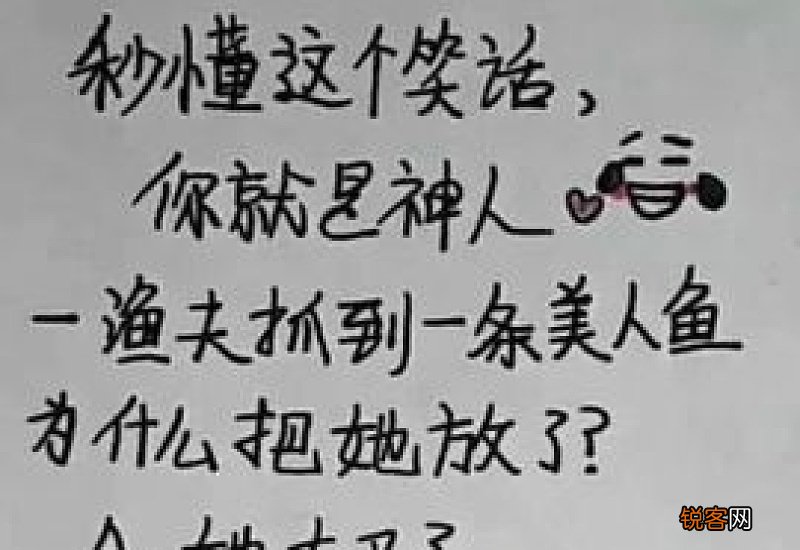 秒懂这个笑话,
你就是神人
一渔夫抓到一条美人鱼
为什么把她放了?
锐客网